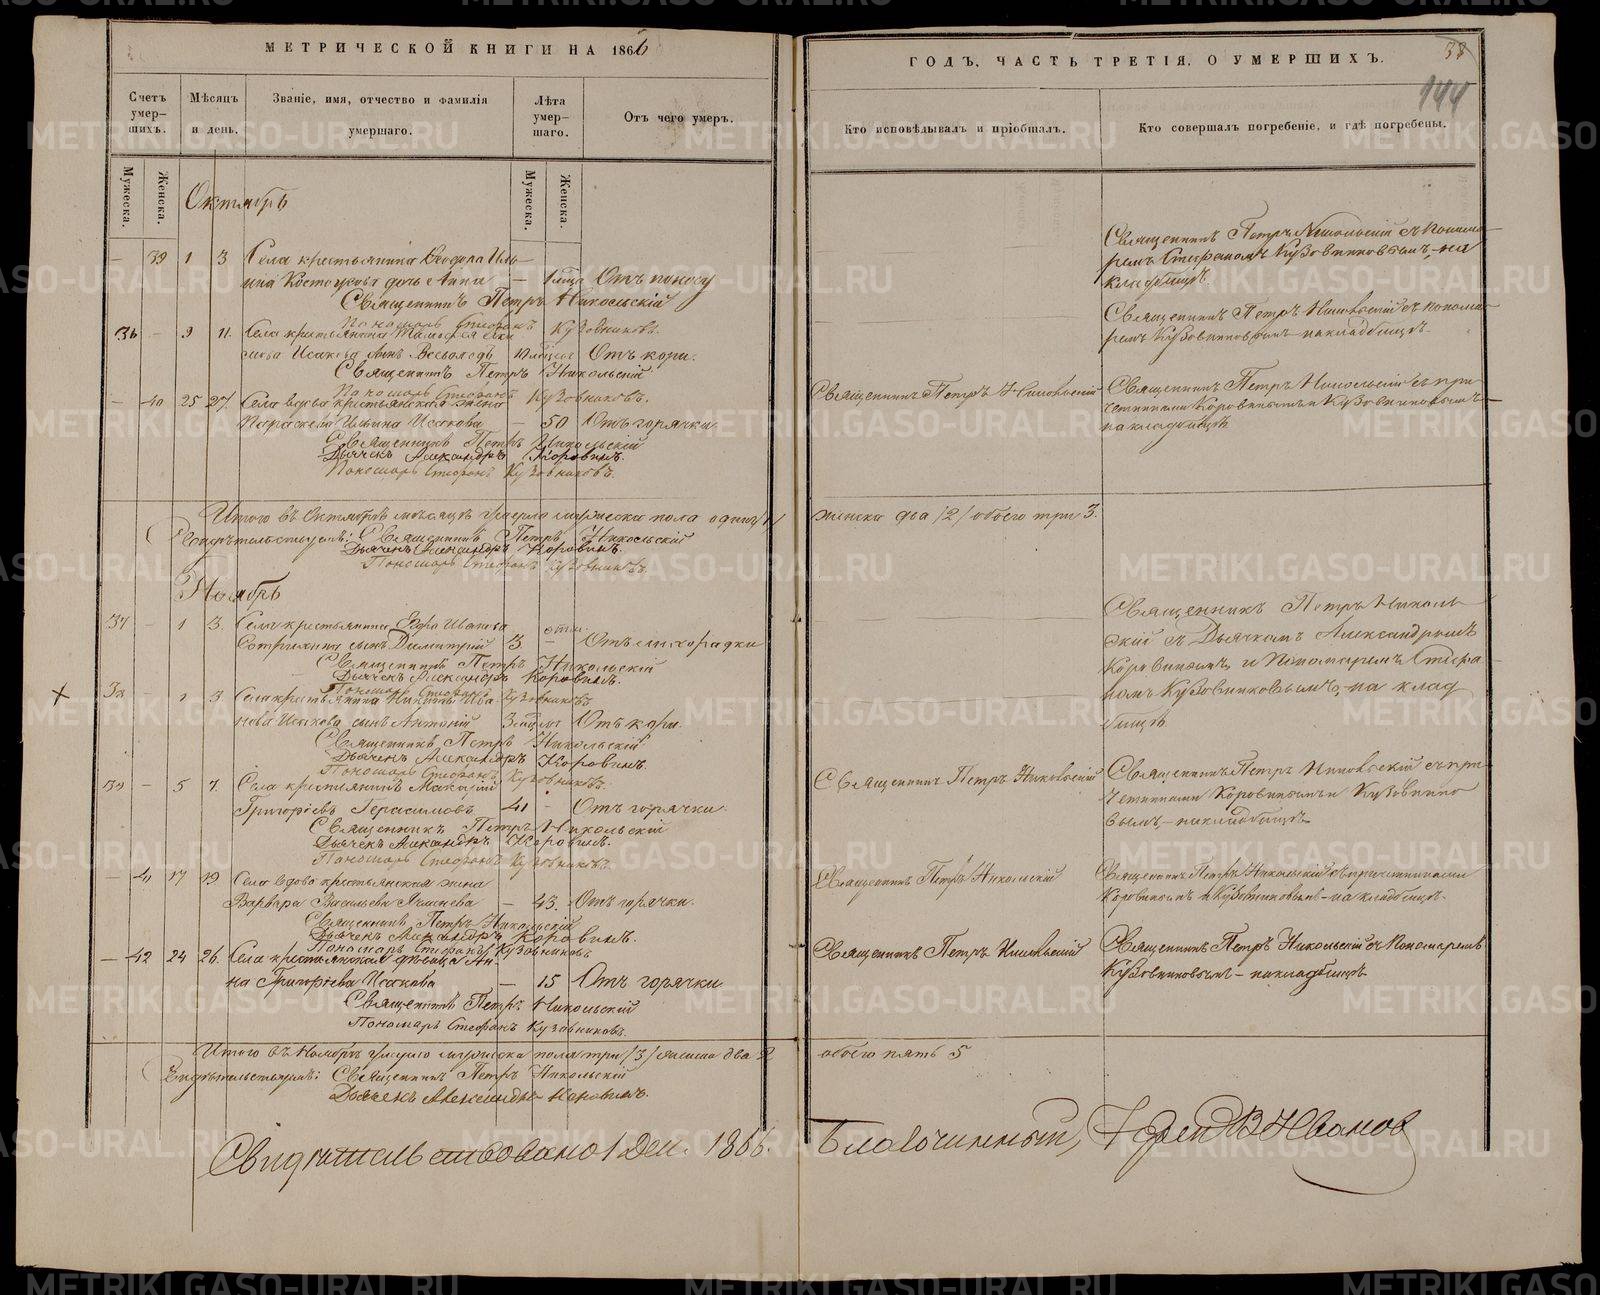 МЕТРИЧЕСКОЙ КНИГИ НА 1866
Счетъ умер-шихъ.
Мѣсяцъ и день.
Званіе, имя, отчество и фамилія умершаго.
Лѣта умер-шаго.
Отъ чего умеръ.
Мужеска.
Женска.
Мужеска.
Женска.
Октябрь
39 1 3 Села крестьянина Ѳеодора Иль-
ина дочь Анна — Отъ поносу
Священникъ Петръ Никольскій
Пономарь Стефанъ Кузовниковъ.
36 — 9 11. Села крестьянина
Исакова сынъ Всеволодъ Отъ кори.
Священникъ Петръ Никольскій
Пономарь Стефанъ Кузовниковъ.
— 40 25 27. Села вдова крестьянская жена
Параскева Ильина Исакова — 50 Отъ горячки.
Священникъ Петръ Никольскій
Дьячекъ Александръ Коровинъ.
Пономарь Стефанъ Кузовниковъ.
Итого въ Октябрѣ мѣсяцѣ умерло мужеска пола одинъ /1/
Свидѣтельствуемъ: Священникъ Петръ Никольскій
Дьячекъ Александръ Коровинъ.
Пономарь Стефанъ Кузовниковъ.
Ноябрь
37 — 1 3. Села крестьянина Иванова
сынъ Димитрій 3 — Отъ лихорадки
Священникъ Петръ Никольскій
Дьячекъ Александръ Коровинъ.
Пономарь Стефанъ Кузовниковъ
38 — 1 3. Села крестьянина Никиты Ива-
нова Исакова сынъ Антоній Отъ кори.
Священникъ Петръ Никольскій
Дьячекъ Александръ Коровинъ.
Пономарь Стефанъ Кузовниковъ.
39 — 5 7. Села крестьянинъ Макарій
Григорьевъ Герасимовъ 41 — Отъ горячки.
Священникъ Петръ Никольскій
Дьячекъ Александръ Коровинъ.
Пономарь Стефанъ Кузовниковъ.
— 41 17 19 Села вдова крестьянская жена
Варвара Васильева — 43. Отъ горячки.
Священникъ Петръ Никольскій
Дьячекъ Александръ Коровинъ.
Пономарь Стефанъ Кузовниковъ
— 42 24 26. Села крестьянская дѣвица Ан-
на Григорьева Исакова — 15 Отъ горячки
Священникъ Петръ Никольскій
Пономарь Стефанъ Кузовниковъ.
Итого въ Ноябрѣ умерло мужеска пола три /3/ женска два 2
Свидѣтельствуемъ: Священникъ Петръ Никольскій
Дьячекъ Александръ Коровинъ.
Свидѣтельствовано 1 Дек. 1866.
ГОДЪ, ЧАСТЬ ТРЕТІЯ, О УМЕРШИХЪ.
38
144
Кто исповѣдывалъ и пріобщалъ.
Кто совершалъ погребеніе, и гдѣ погребены.
Священникъ Петръ Никольскій съ Понома-
ремъ Стефаномъ Кузовниковымъ, на
кладбищѣ.
Священникъ Петръ Никольскій съ понома-
ремъ Кузовниковымъ — на кладбищѣ.
Священникъ Петръ Никольскій
Священникъ Петръ Никольскій съ при-
четниками Коровинымъ и Кузовниковымъ —
на кладбищѣ
женска два /2/ обоего три 3.
Священникъ Петръ Николь-
скій съ Дьячкомъ Александромъ
Коровинымъ и Пономаремъ Стефа-
номъ Кузовниковымъ, — на клад-
бищѣ
Священникъ Петръ Никольскій
Священникъ Петръ Никольскій съ при-
четниками Коровинымъ и Кузовнико-
вымъ, — на кладбищѣ.
Священникъ Петръ Никольскій
Священникъ Петръ Никольскій съ причетниками
Коровинымъ и Кузовниковымъ — на кладбищѣ.
Священникъ Петръ Никольскій
Священникъ Петръ Никольскій съ Пономаремъ
Кузовниковымъ — на кладбищѣ
обоего пять 5
Благочинный, Іерей В Ивановъ
METRIKI.GASO-URAL.RU